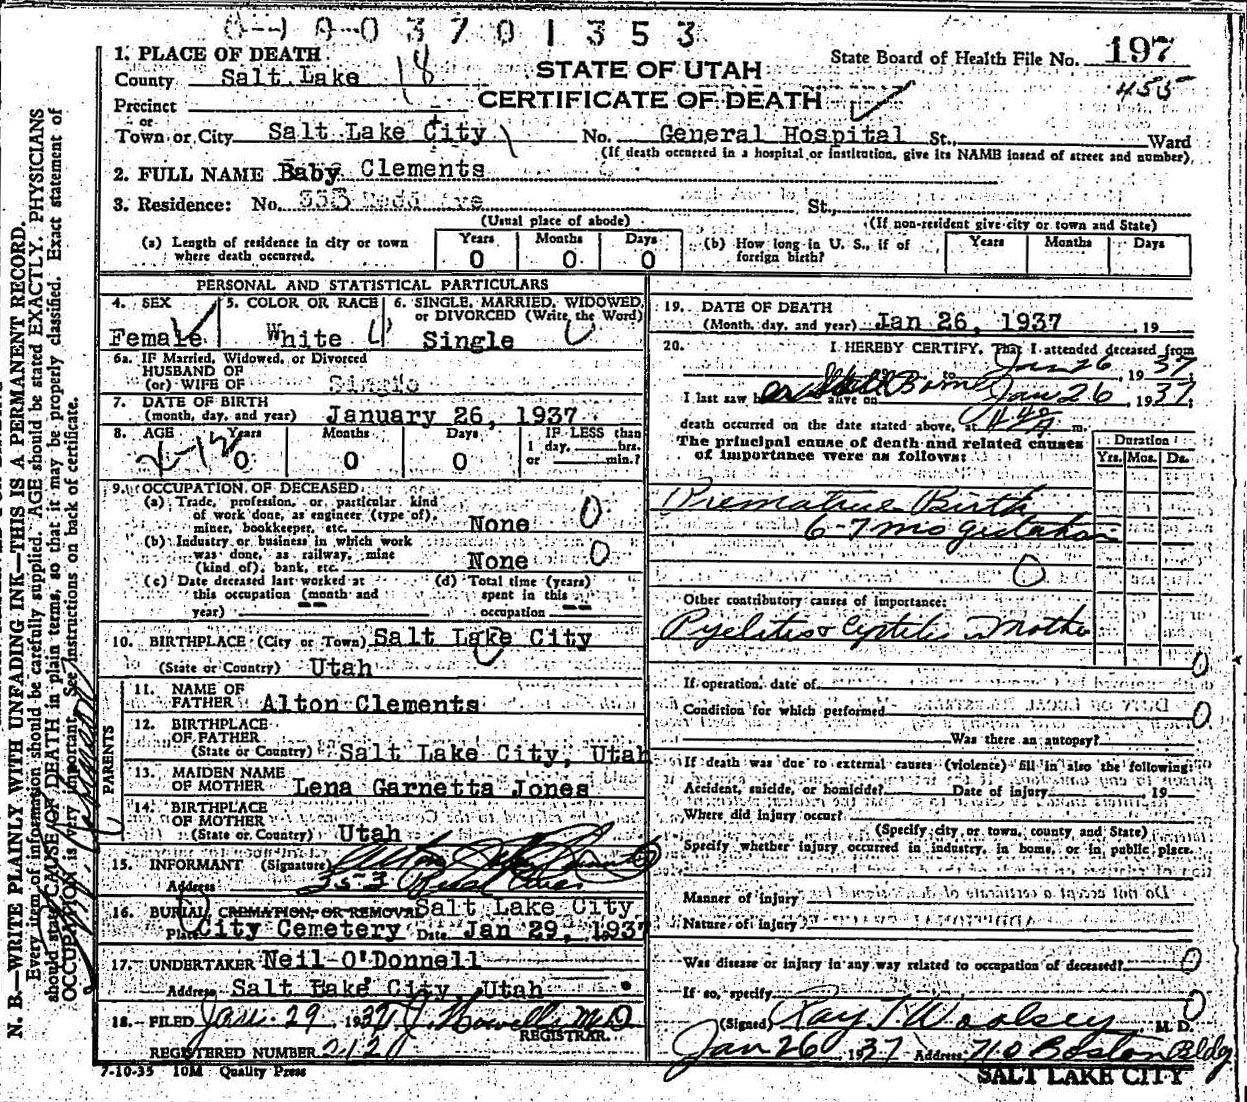 0370 1353
1. PLACE OF DEATH
County Salt Lake 18
STATE OF UTAH
State Board of Health File No. 197
CERTIFICATE OF DEATH
455
Precinct
or
Town or City Salt Lake City No. General Hospital St., Ward
(If death occurred in a hospital or institution, give its NAME instead of street and number)
2. FULL NAME Baby Clements
3. Residence: No. St.,
(Usual place of abode) (If non-resident give city or town and State)
(a) Length of residence in city or town where death occurred. Years 0 Months 0 Days 0
(b) How long in U. S., if of foreign birth? Years Months Days
PERSONAL AND STATISTICAL PARTICULARS
4. SEX Female
5. COLOR OR RACE White
6. SINGLE, MARRIED, WIDOWED, or DIVORCED (Write the Word) Single
6a. IF Married, Widowed, or Divorced
HUSBAND OF
(or) WIFE OF Single
7. DATE OF BIRTH
(month, day, and year) January 26, 1937
8. AGE Years 0 Months 0 Days 0 IF LESS than 1 day, hrs. or min.?
9. OCCUPATION OF DECEASED
(a) Trade, profession, or particular kind
of work done, as engineer (type of),
miner, bookkeeper, etc. None 0
(b) Industry or business in which work
was done, as railway, mine
(kind of), bank, etc. None 0
(c) Date deceased last worked at this occupation (month and year)
(d) Total time (years) spent in this occupation
10. BIRTHPLACE (City or Town) Salt Lake City
(State or Country) Utah
PARENTS
11. NAME OF FATHER Alton Clements
12. BIRTHPLACE OF FATHER
(State or Country) Salt Lake City, Utah
13. MAIDEN NAME OF MOTHER Lena Garnetta Jones
14. BIRTHPLACE OF MOTHER
(State or Country) Utah
15. INFORMANT (Signature)
Address
16. BURIAL, CREMATION, OR REMOVAL Salt Lake City
Place City Cemetery Date Jan 29, 1937
17. UNDERTAKER Neil O'Donnell
Address Salt Lake City, Utah
18. FILED Jan. 29 1937 Howells M D
REGISTRAR.
REGISTERED NUMBER 212
7-10-35 10M Quality Press
19. DATE OF DEATH
(Month, day, and year) Jan 26, 1937 , 19
20. I HEREBY CERTIFY, That I attended deceased from
to Jan 26, 1937
I last saw h alive on Jan 26, 1937
death occurred on the date stated above, at m.
The principal cause of death and related causes
of importance were as follows:
Duration
Yrs. Mos. Ds.
Premature Birth
6-7 mo gestation
0
Other contributory causes of importance:
Pyelitis & Cystitis in Mother
0
If operation, date of
Condition for which performed 0
Was there an autopsy?
If death was due to external causes (violence) fill in also the following:
Accident, suicide, or homicide? Date of injury 19
Where did injury occur?
(Specify city or town, county, and State)
Specify whether injury occurred in industry, in home, or in public place.
Manner of injury
Nature of injury
Was disease or injury in any way related to occupation of deceased? 0
If so, specify 0
(Signed) Ray T Woolsey M. D.
Jan 26 1937 Address 710 Boston Bldg
SALT LAKE CITY
N. B.—WRITE PLAINLY WITH UNFADING INK—THIS IS A PERMANENT RECORD.
Every item of information should be carefully supplied. AGE should be stated EXACTLY. PHYSICIANS
should state CAUSE OF DEATH in plain terms, so that it may be properly classified. Exact statement of
OCCUPATION is very important. See instructions on back of certificate.